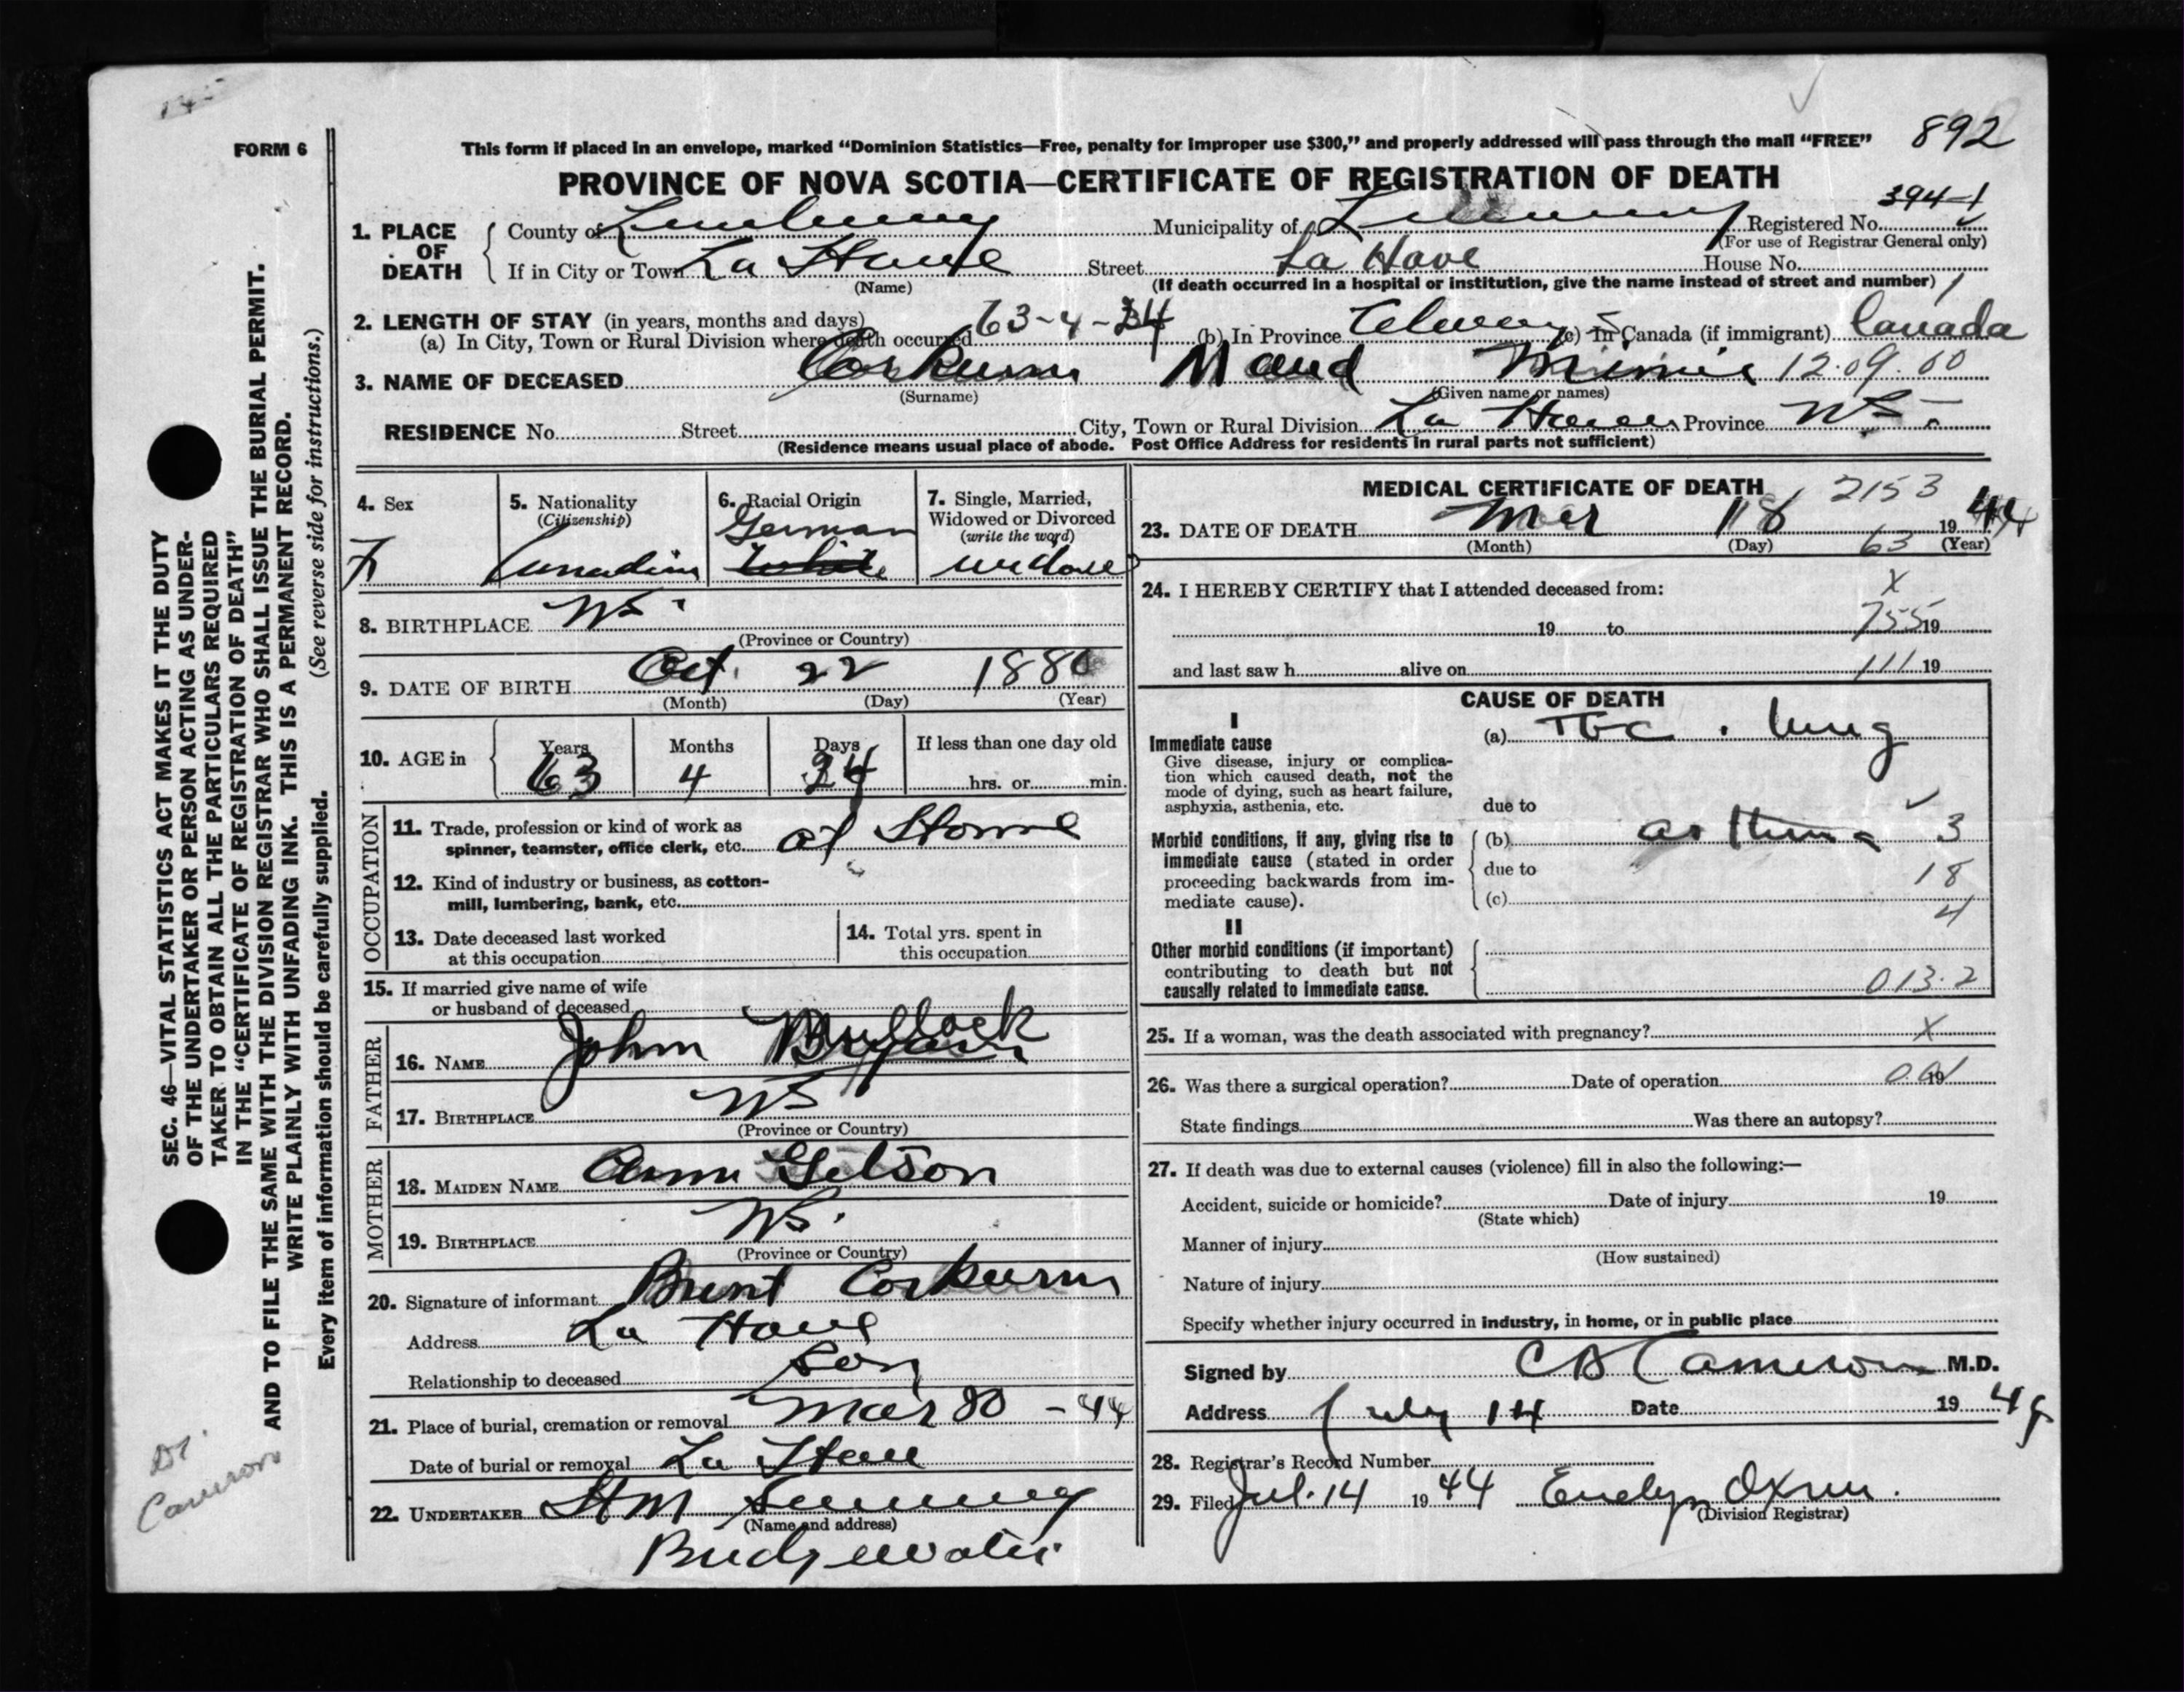 FORM 6
This form if placed in an envelope, marked “Dominion Statistics—Free, penalty for improper use $300,” and properly addressed will pass through the mail “FREE”
892
PROVINCE OF NOVA SCOTIA—CERTIFICATE OF REGISTRATION OF DEATH
394-1
1. PLACE OF DEATH
County of Lunenburg Municipality of Registered No.
(For use of Registrar General only)
If in City or Town La Have Street La Have House No.
(Name) (If death occurred in a hospital or institution, give the name instead of street and number)
2. LENGTH OF STAY (in years, months and days)
(a) In City, Town or Rural Division where death occurred 63-4-24 (b) In Province Always (c) In Canada (if immigrant) Canada
3. NAME OF DECEASED Corkum Maud Minnie 12.09.00
(Surname) (Given name or names)
RESIDENCE No. Street City, Town or Rural Division La Have Province NS.
(Residence means usual place of abode. Post Office Address for residents in rural parts not sufficient)
4. Sex
F
5. Nationality
(Citizenship)
Canadian
6. Racial Origin
German
White
7. Single, Married,
Widowed or Divorced
(write the word)
widow
8. BIRTHPLACE NS.
(Province or Country)
9. DATE OF BIRTH Oct. 22 1880
(Month) (Day) (Year)
10. AGE in
Years Months Days If less than one day old
63 4 24 hrs. or min.
OCCUPATION
11. Trade, profession or kind of work as
spinner, teamster, office clerk, etc. at Home
12. Kind of industry or business, as cotton-
mill, lumbering, bank, etc.
13. Date deceased last worked
at this occupation
14. Total yrs. spent in
this occupation
15. If married give name of wife
or husband of deceased
FATHER
16. NAME John Bullock
17. BIRTHPLACE NS
(Province or Country)
MOTHER
18. MAIDEN NAME Ann Gelson
19. BIRTHPLACE NS.
(Province or Country)
20. Signature of informant Brent Corkum
Address La Have
Relationship to deceased son
21. Place of burial, cremation or removal Mar 80 - 44
Date of burial or removal La Have
22. UNDERTAKER HM
(Name and address)
Bridgewater
MEDICAL CERTIFICATE OF DEATH 2153
23. DATE OF DEATH Mar 18 19 44
(Month) (Day) 63 (Year)
24. I HEREBY CERTIFY that I attended deceased from:
X
19 to 755 19
and last saw h alive on 111 19
CAUSE OF DEATH
I
Immediate cause
Give disease, injury or complica-
tion which caused death, not the
mode of dying, such as heart failure,
asphyxia, asthenia, etc.
(a) Tbc. lung
due to
Morbid conditions, if any, giving rise to
immediate cause (stated in order
proceeding backwards from im-
mediate cause).
(b) asthma 3
due to 18
(c) 4
II
Other morbid conditions (if important)
contributing to death but not
causally related to immediate cause.
013.2
25. If a woman, was the death associated with pregnancy? X
26. Was there a surgical operation? Date of operation 19
State findings Was there an autopsy?
27. If death was due to external causes (violence) fill in also the following:—
Accident, suicide or homicide? Date of injury 19
(State which)
Manner of injury
(How sustained)
Nature of injury
Specify whether injury occurred in industry, in home, or in public place
Signed by C A Cameron M.D.
Address July 14 Date 19 44
28. Registrar's Record Number
29. Filed Jul. 14 19 44 Evelyn Oxner.
(Division Registrar)
SEC. 46—VITAL STATISTICS ACT MAKES IT THE DUTY
OF THE UNDERTAKER OR PERSON ACTING AS UNDER-
TAKER TO OBTAIN ALL THE PARTICULARS REQUIRED
IN THE “CERTIFICATE OF REGISTRATION OF DEATH”
AND TO FILE THE SAME WITH THE DIVISION REGISTRAR WHO SHALL ISSUE THE BURIAL PERMIT.
WRITE PLAINLY WITH UNFADING INK. THIS IS A PERMANENT RECORD.
Every item of information should be carefully supplied. (See reverse side for instructions.)
Dr.
Cameron